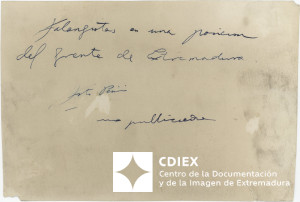 Falangistas en una posicion
del frente de Extremadura
foto
no publicada
CDIEX
Centro de la Documentación
y de la Imagen de Extremadura